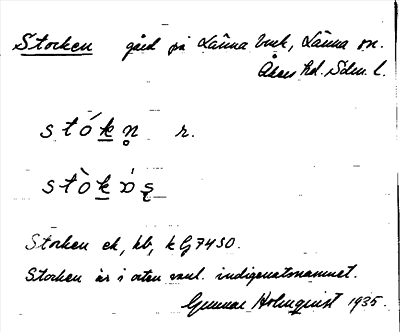 Stocken gård på Länna bruk, Länna sn.
Åkers hd. Sdm. l.
stók̲n̥ r.
stòk̲
Stocken ek, hb, kG 7450.
Stocken är i orten vanl. indigenatsnamnet.
Gunnar Holmquist 1935.